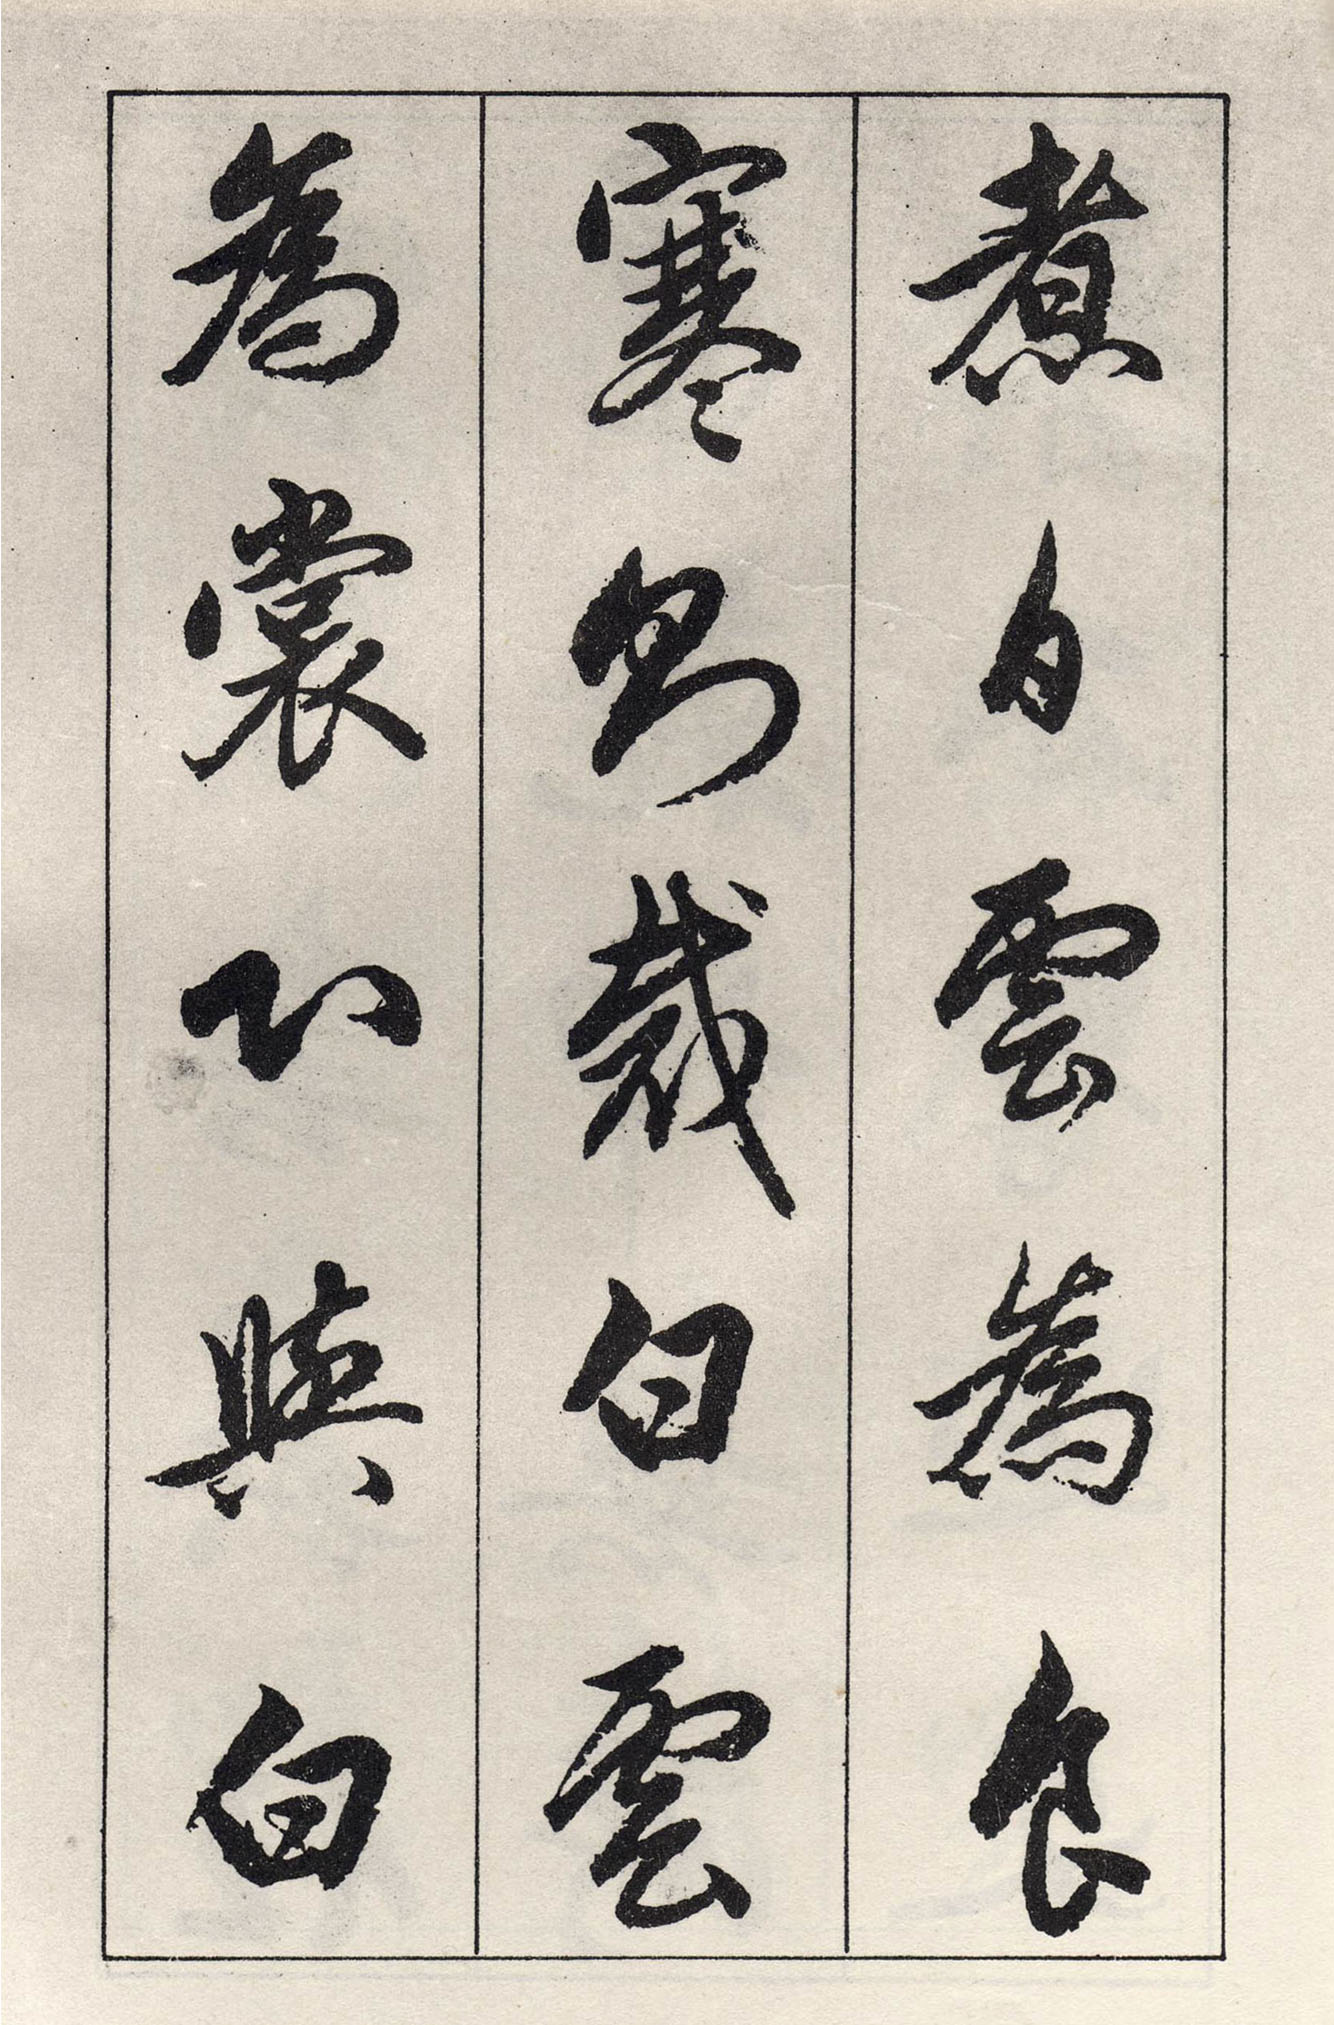 煮白雲為食
寒則裁白雲
為裳心與白